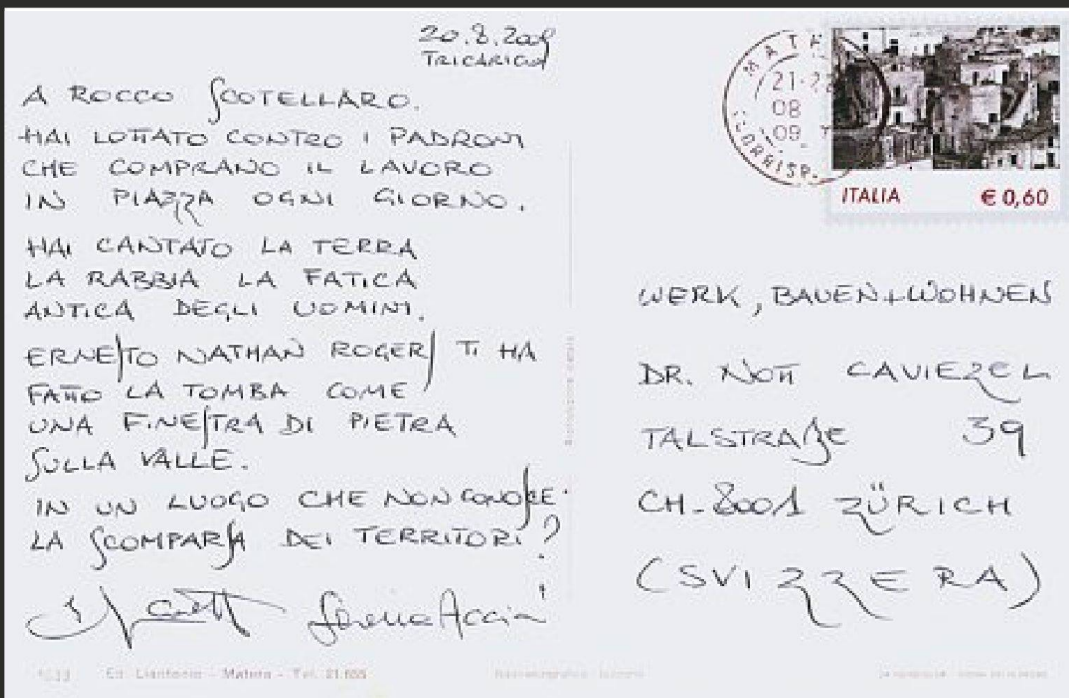 20.8.2009
TRICARICO
A ROCCO SCOTELLARO.
HAI LOTTATO CONTRO I PADRONI
CHE COMPRANO IL LAVORO
IN PIAZZA OGNI GIORNO.
HAI CANTATO LA TERRA
LA RABBIA LA FATICA
ANTICA DEGLI UOMINI.
ERNESTO NATHAN ROGERS TI HA
FATTO LA TOMBA COME
UNA FINESTRA DI PIETRA
SULLA VALLE.
IN UN LUOGO CHE NON CONOSCE
LA SCOMPARSA DEI TERRITORI?
Serena Acciai
Matera - Tel. 21.655
MATE
21-
08
09
ITALIA € 0,60
WERK, BAUEN+WOHNEN
DR. NOTT CAVIEZEL
TALSTRAßE 39
CH-8001 ZÜRICH
(SVIZZERA)